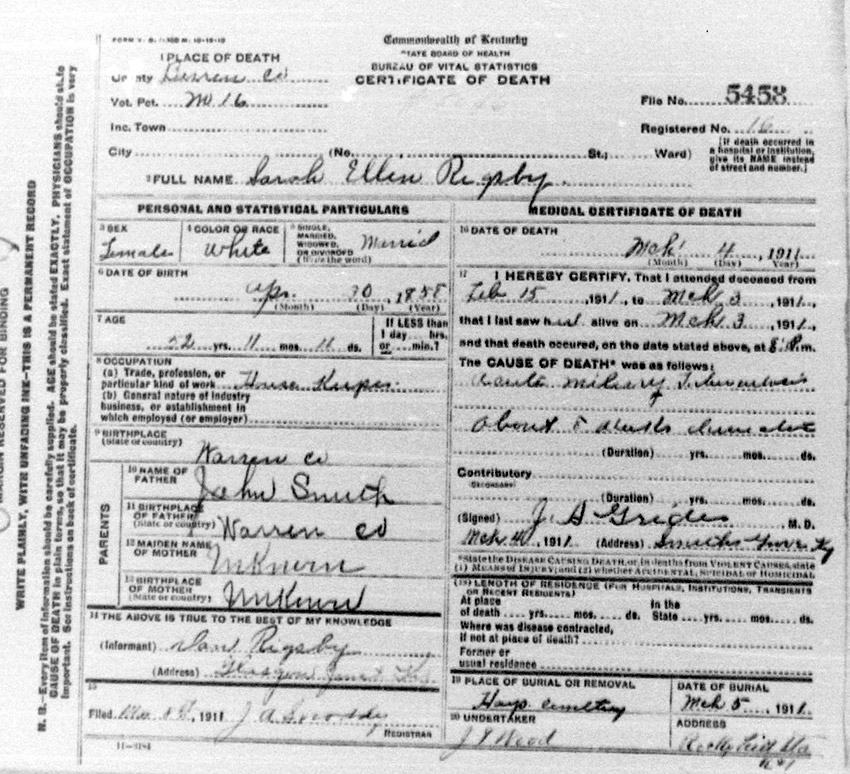 Commonwealth of Kentucky
STATE BOARD OF HEALTH
BUREAU OF VITAL STATISTICS
CERTIFICATE OF DEATH
1 PLACE OF DEATH
County Warren Co
Vot. Pct. No 16
Inc. Town
City (No. St.; Ward)
File No. 5453
Registered No. 16
[If death occurred in a hospital or institution, give its NAME instead of street and number.]
2 FULL NAME Sarah Ellen Rigsby
PERSONAL AND STATISTICAL PARTICULARS
3 SEX
Female
4 COLOR OR RACE
White
5 SINGLE, MARRIED, WIDOWED, OR DIVORCED (Write the word)
Married
6 DATE OF BIRTH
Apr. 20, 1858
(Month) (Day) (Year)
7 AGE
52 yrs. 11 mos. 11 ds.
If LESS than 1 day hrs. or min.?
8 OCCUPATION
(a) Trade, profession, or particular kind of work House Keeper
(b) General nature of industry business, or establishment in which employed (or employer)
9 BIRTHPLACE
(State or country)
Warren Co
PARENTS
10 NAME OF FATHER
John Smith
11 BIRTHPLACE OF FATHER
(State or country)
Warren Co
12 MAIDEN NAME OF MOTHER
Unknown
13 BIRTHPLACE OF MOTHER
(State or country)
Unknown
14 THE ABOVE IS TRUE TO THE BEST OF MY KNOWLEDGE
(Informant) Rigsby
(Address) Glasgow
15
Filed , 1911 J A
REGISTRAR
11-3184
MEDICAL CERTIFICATE OF DEATH
16 DATE OF DEATH
Mch 4, 1911
(Month) (Day) (Year)
17 I HEREBY CERTIFY, That I attended deceased from
Feb 15, 1911, to Mch 3, 1911,
that I last saw her alive on Mch 3, 1911,
and that death occured, on the date stated above, at 8 P.m.
The CAUSE OF DEATH* was as follows:
Acute miliary Tuberculosis
About 5
(Duration) yrs. mos. ds.
Contributory
SECONDARY
(Duration) yrs. mos. ds.
(Signed) J. M.D.
Mch 4, 1911 (Address) Smiths Grove Ky
*State the DISEASE CAUSING DEATH, or, in deaths from VIOLENT CAUSES, state (1) MEANS OF INJURY; and (2) whether ACCIDENTAL, SUICIDAL or HOMICIDAL
(18) LENGTH OF RESIDENCE (FOR HOSPITALS, INSTITUTIONS, TRANSIENTS OR RECENT RESIDENTS)
At place of death yrs. mos. ds. In the State yrs. mos. ds.
Where was disease contracted, if not at place of death?
Former or usual residence
19 PLACE OF BURIAL OR REMOVAL
Hays cemetery
DATE OF BURIAL
Mch 5, 1911
20 UNDERTAKER
Wood
ADDRESS
MARGIN RESERVED FOR BINDING
WRITE PLAINLY, WITH UNFADING INK—THIS IS A PERMANENT RECORD
N. B.—Every item of information should be carefully supplied. AGE should be stated EXACTLY. PHYSICIANS should state
CAUSE OF DEATH in plain terms, so that it may be properly classified. Exact statement of OCCUPATION is very
important. See instructions on back of certificate.